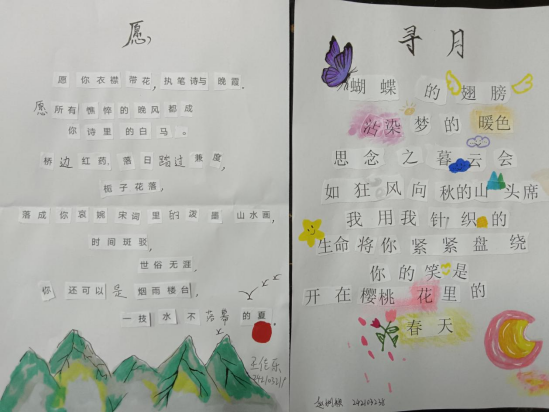 愿
愿 你 衣襟 带花，执笔诗与 晚霞.
愿 所有 憔悴的 晚风 都成
你 诗里 的 白马 。
桥 边 红药, 落日 踏过 兼度,
栀子 花落,
落成 你 哀婉 宋词 里 的 泼 墨 山水画,
时间 斑驳,
世俗 无涯,
你 还可以 是 烟雨 楼台,
一技 水 不 落幕 的 夏.
寻 月
蝴 蝶 的 翅 膀
沾染 梦 的 暖色
思 念 之 暮 云 会
如 狂 风 向 秋的 山 头席
我 用 我 针 织 的
生命 将 你 紧 紧 盘 绕
你 的 笑 是
开 在 樱桃 花 里 的
春 天